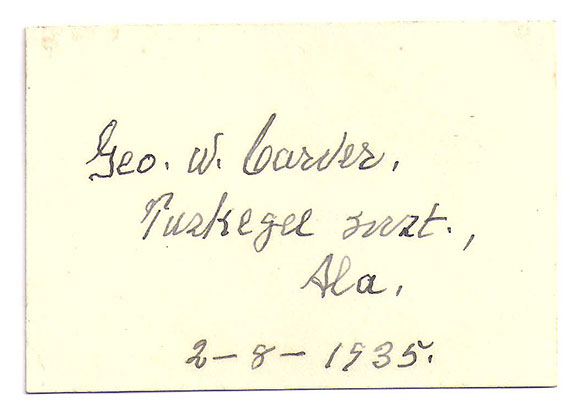 Geo. W. Carver.
Tuskegee Inst.,
Ala.
2-8-1935.